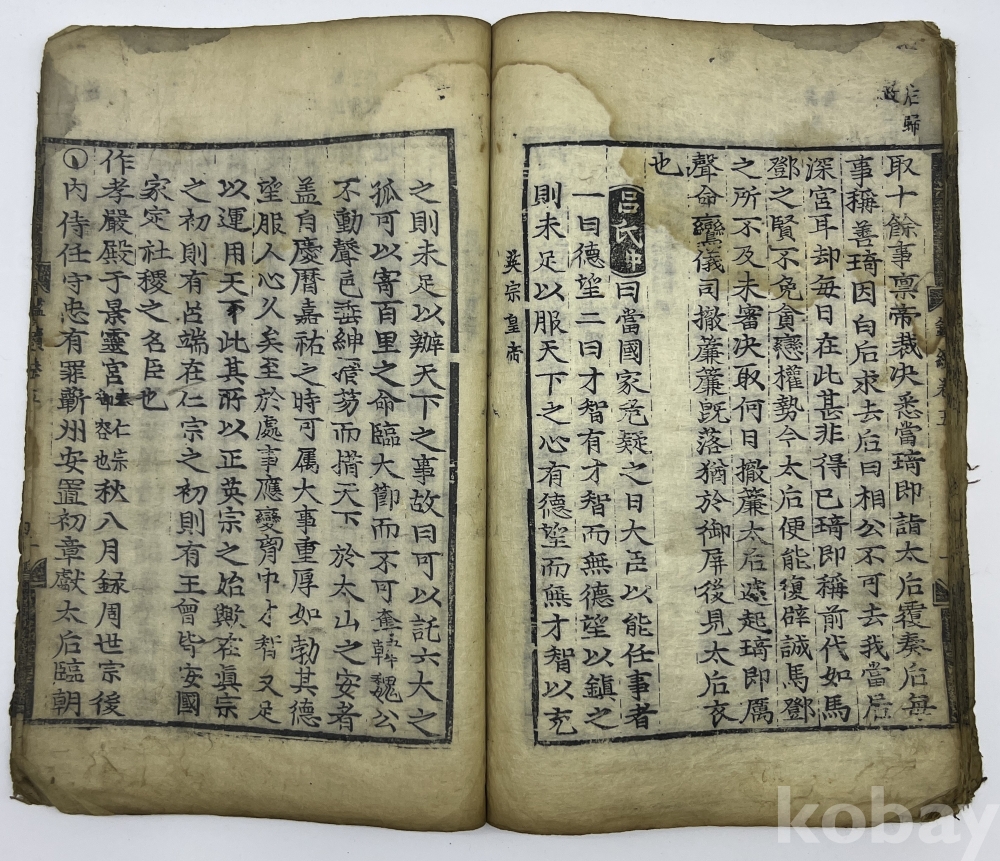 后歸
政
取十餘事禀帝裁决悉當琦即詣太后覆奏后每
事稱善琦因白后求去后曰相公不可去我當居
深宮耳却每日在此甚非得已琦即稱前代如馬
鄧之賢不免貪戀權勢今太后便能復辟誠馬鄧
之所不及未審决取何日撤簾太后遽起琦即厲
聲命鸞儀司撤簾簾旣落猶於御屏後見太后衣
也
呂氏中曰當國家危疑之日大臣以能任事者
一曰德望二曰才智有才智而無德望以鎮之
則未足以服天下之心有德望而無才智以充
英宗皇帝
之則未足以辦天下之事故曰可以託六大之
孤可以寄百里之命臨大節而不可奪韓魏公
不動聲色垂紳搢笏而措天下於太山之安者
盖自慶曆嘉祐之時可属大事重厚如勃其德
望服人心久矣至於處事應變胷中才智又足
以運用天下此其所以正英宗之始歟在眞宗
之初則有呂端在仁宗之初則有王曾皆安國
家定社稷之名臣也
作孝嚴殿于景靈宮奉仁宗御容也秋八月録周世宗後
内侍任守忠有罪蘄州安置初章獻太后臨朝
卷五
kobay